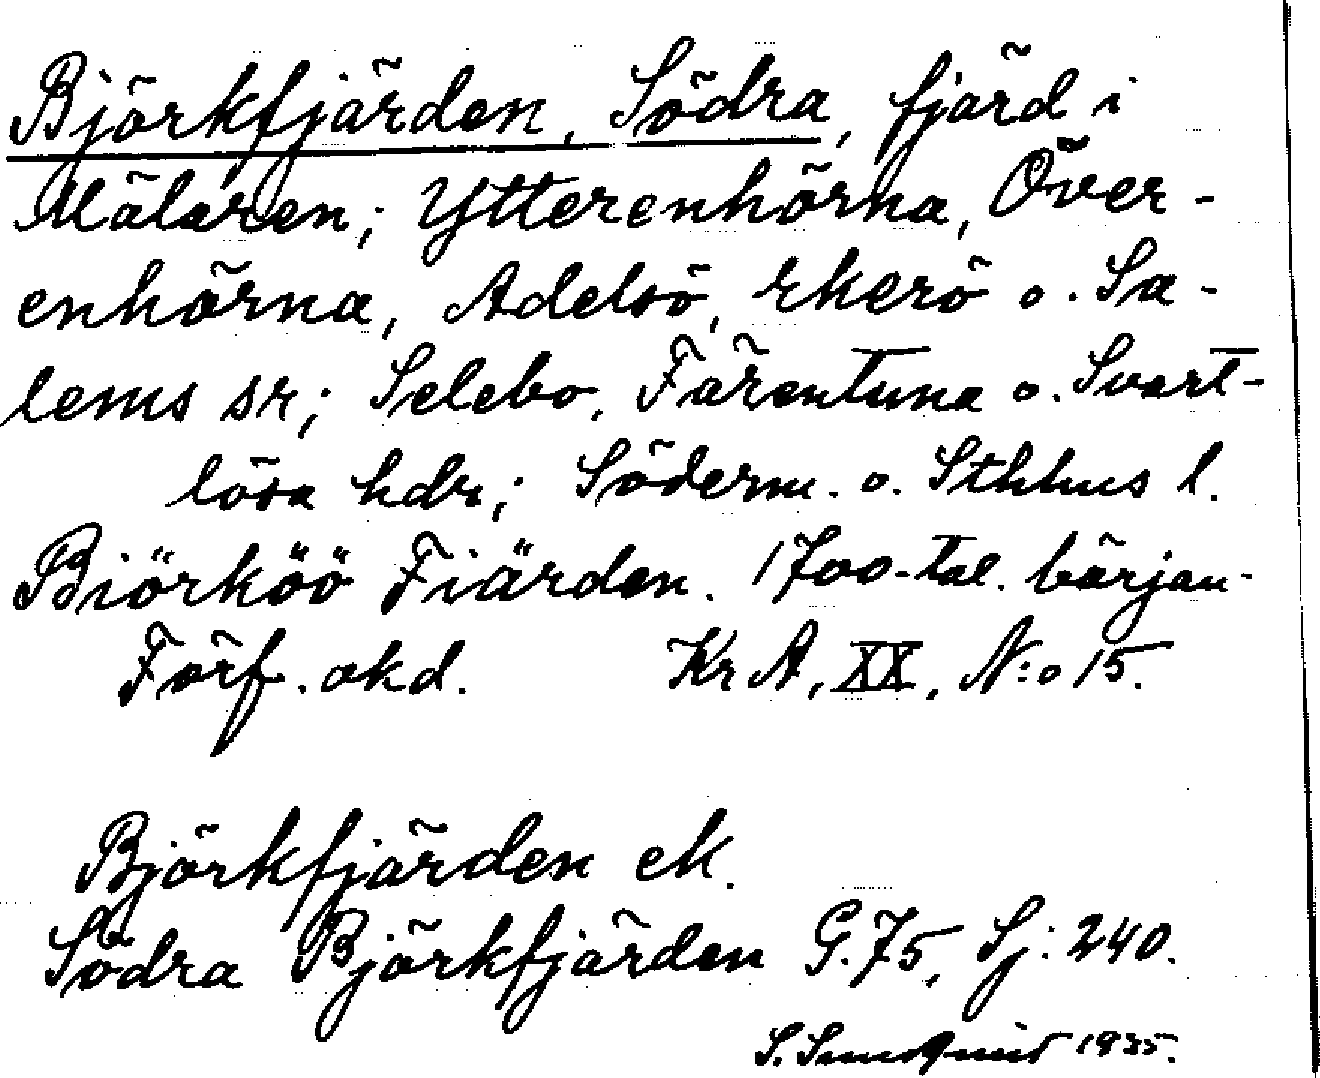 Björkfjärden, Södra, fjärd i
Mälaren; Ytterenhörna, Över-
enhörna, Adelsö, Ekerö o. Sa-
lems sr; Selebo, Färentuna o. Svart-
lösa hdr; Söderm. o. Sthlms l.
Biörköö Fiärden. 1700-tal. början-
Förf. okd. Kr A, XX, N:o 15.
Björkfjärden ek.
Södra Björkfjärden G. 75, Sj: 240.
S. Sundqvist 1935.